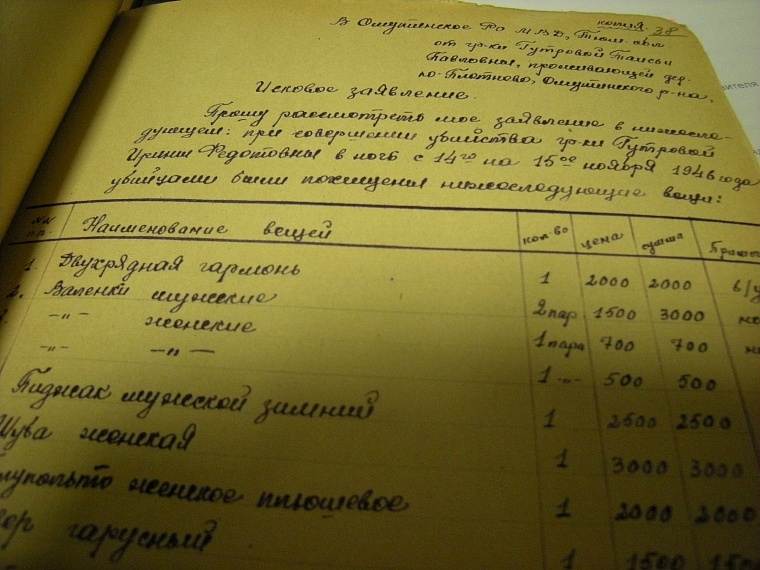 копия 38
В Омутинское Ро МВД, Тюм. обл
от гр-ки Гутровой Таисьи
Павловны, проживающей дер.
ю-Плетнево, Омутинского р-на,
Исковое заявление.
Прошу рассмотреть мое заявление в нижесле-
дующем: при совершении убийства гр-ки Гутровой
Ирины Федотовны в ночь с 14го на 15ое ноября 1946 года
убийцами были похищены нижеследующие вещи:
Наименование вещей кол-во цена сумма
1. Двухрядная гармонь 1 2000 2000
2. Валенки мужские 2 пар 1500 3000
-„- женские 1 пара 700 700
-„- -„- 1 -„- 500 500
Пиджак мужской зимний 1 2500 2500
Шуба женская 1 3000 3000
женское плюшевое 1 2000 2000
гарусный 1 1500